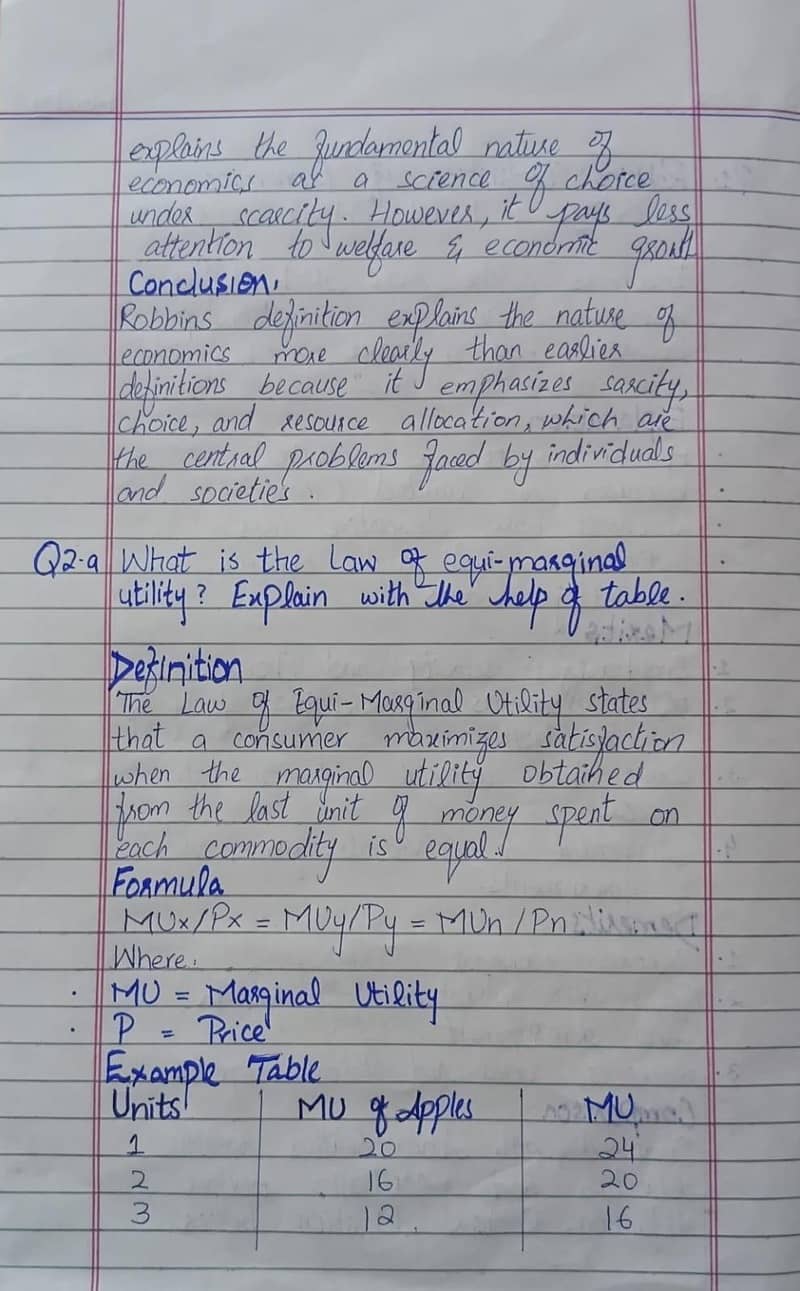 explains the fundamental nature of
economics as a science of choice
under scarcity. However, it pays less
attention to welfare & economic growth
Conclusion:
Robbins definition explains the nature of
economics more clearly than earlier
definitions because it emphasizes sarcity,
choice, and resource allocation, which are
the central problems faced by individuals
and societies.
Q2.a What is the Law of equi-marginal
utility? Explain with the help of table.
Definition
The Law of Equi-Marginal Utility states
that a consumer maximizes satisfaction
when the marginal utility obtained
from the last unit of money spent on
each commodity is equal.
Formula
MUx/Px = MUy/Py = MUn/Pn
Where:
. MU = Marginal Utility
. P = Price
Example Table
Units MU of Apples MU
1 20 24
2 16 20
3 12 16